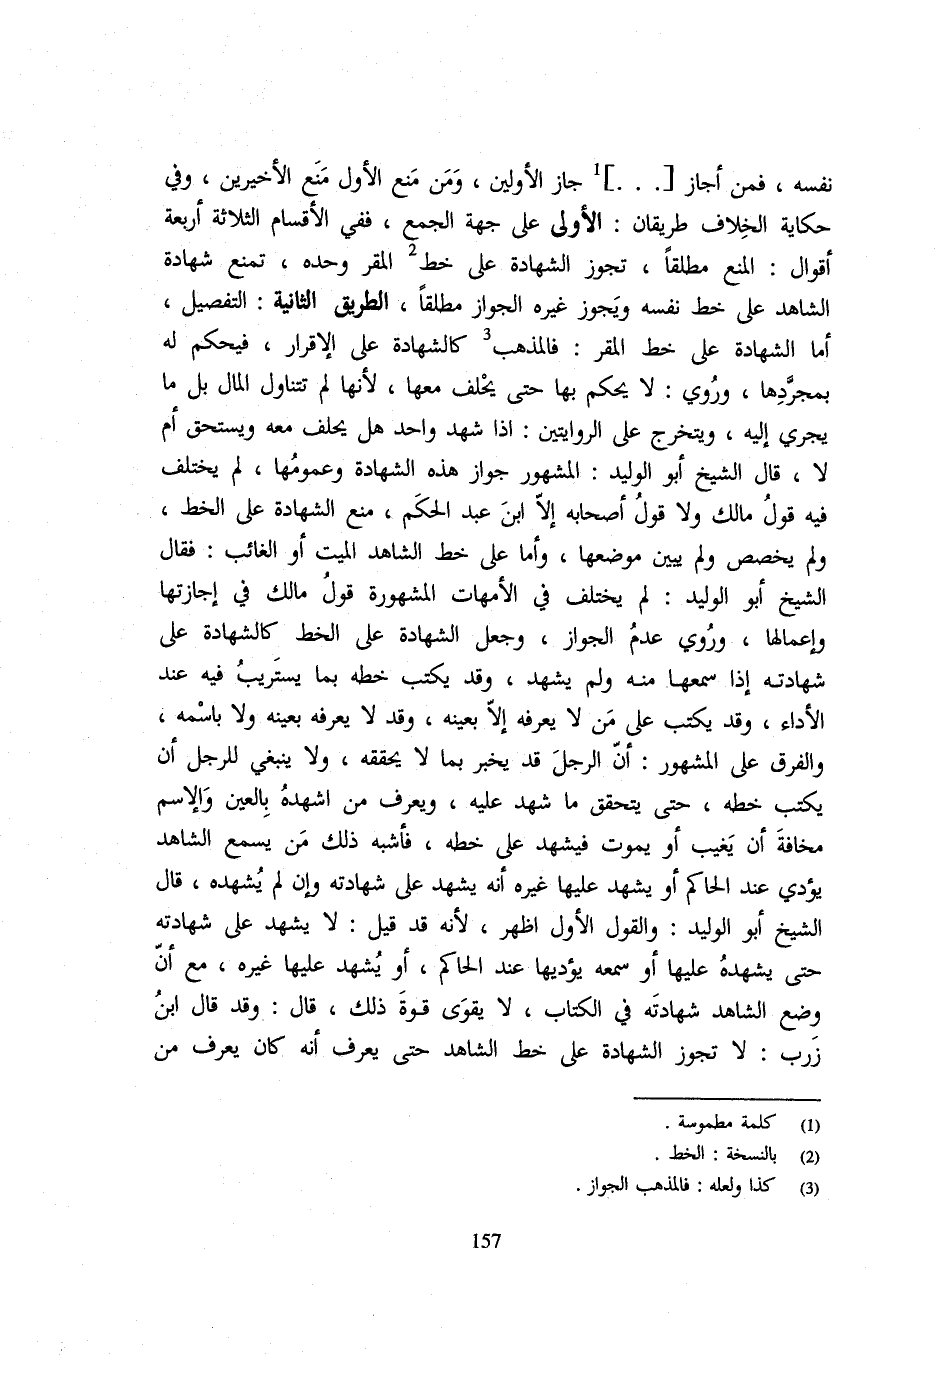 نفسه ، فمن أجاز [. . .]1 جاز الأولين ، وَمَن مَنع الأول مَنَع الأخيرين ، وفي
حكاية الخِلاف طريقان : الأولى على جهة الجمع ، ففي الأقسام الثلاثة أربعة
أقوال : المنع مطلقاً ، تجوز الشهادة على خط2 المقر وحده ، تمنع شهادة
الشاهد على خط نفسه ويَجوز غيره الجواز مطلقاً ، الطريق الثانية : التفصيل ،
أما الشهادة على خط المقر : فالمذهب3 كالشهادة على الإقرار ، فيحكم له
بمجرَّدِها ، ورُوي : لا يحكم بها حتى يحْلف معها ، لأنها لم تتناول المال بل ما
يجري إليه ، ويتخرج على الروايتين : اذا شهد واحد هل يحلف معه ويستحق أم
لا ، قال الشيخ أبو الوليد : المشهور جواز هذه الشهادة وعمومُها ، لم يختلف
فيه قولُ مالك ولا قولُ أصحابه إلاّ ابنَ عبد الحكَم ، منع الشهادة على الخط ،
ولم يخصص ولم يبين موضعها ، وأما على خط الشاهد الميت أو الغائب : فقال
الشيخ أبو الوليد : لم يختلف في الأمهات المشهورة قولُ مالك في إجازتها
وإعمالها ، ورُوي عدمُ الجواز ، وجعل الشهادة على الخط كالشهادة على
شهادته إذا سمعها منه ولم يشهد ، وقد يكتب خطه بما يستَريبُ فيه عند
الأداء ، وقد يكتب على مَن لا يعرفه إلاّ بعينه ، وقد لا يعرفه بعينه ولا باسْمه ،
والفرق على المشهور : أنّ الرجلَ قد يخبر بما لا يحققه ، ولا ينبغي للرجل أن
يكتب خطه ، حتى يتحقق ما شهد عليه ، ويعرف من اشهدهُ بِالعين وَالإسم
مخافةَ أن يَغيب أو يموت فيشهد على خطه ، فأشبه ذلك مَن يسمع الشاهد
يؤدي عند الحاكم أو يشهد عليها غيره أنه يشهد على شهادته وإن لم يُشهده ، قال
الشيخ أبو الوليد : والقول الأول اظهر ، لأنه قد قيل : لا يشهد على شهادته
حتى يشهدهُ عليها أو سمعه يؤديها عند الحاكم ، أو يُشهد عليها غيره ، مع أنّ
وضع الشاهد شهادتَه في الكتاب ، لا يقوَى قوةَ ذلك ، قال : وقد قال ابنُ
زَرب : لا تجوز الشهادة على خط الشاهد حتى يعرف أنه كان يعرف من
(1) كلمة مطموسة .
(2) بالنسخة : الخط .
(3) كذا ولعله : فالمذهب الجواز .
157